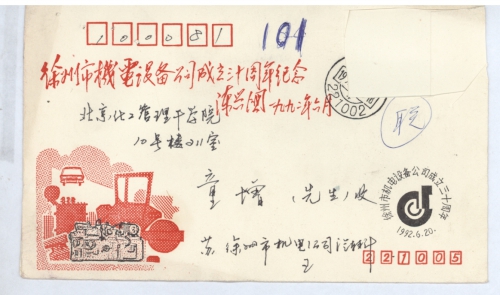 100081
101
徐州市機電設备公司成立三十周年纪念
一九九二年六月
221002
联
北京化工管理干部学院
10号楼211室
童增(先生)收
徐州市机电设备公司成立三十周年
1992.6.20.
苏徐州市机电公司汽材科
王
221005